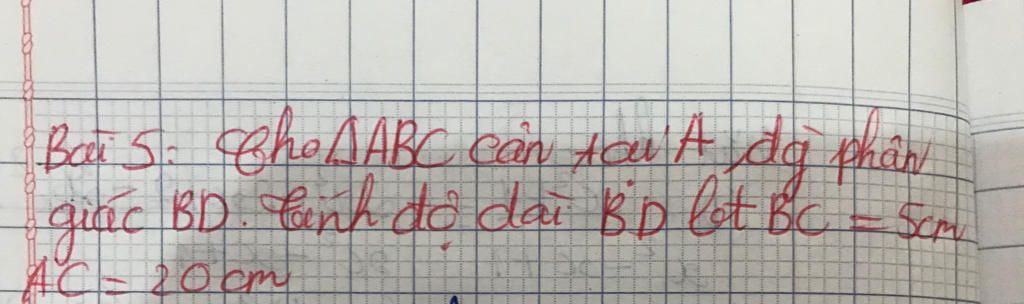 Bài 5: Cho ΔABC cân tại A, đg phân
giác BD. Tính độ dài BD bt BC = 5cm
AC = 20 cm